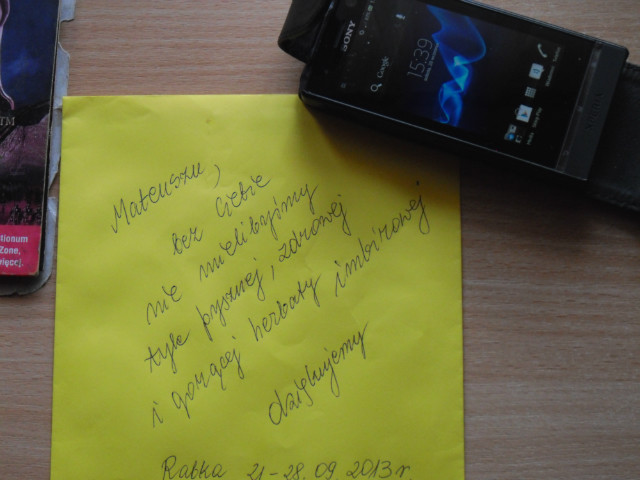 Mateuszu,
bez Ciebie
nie mielibyśmy
tyle pysznej, zdrowej
i gorącej herbaty imbirowej
dziękujemy
Rabka 21-28.09.2013 r.
SONY
15:39
Google
TM
Zone,
XPERIA